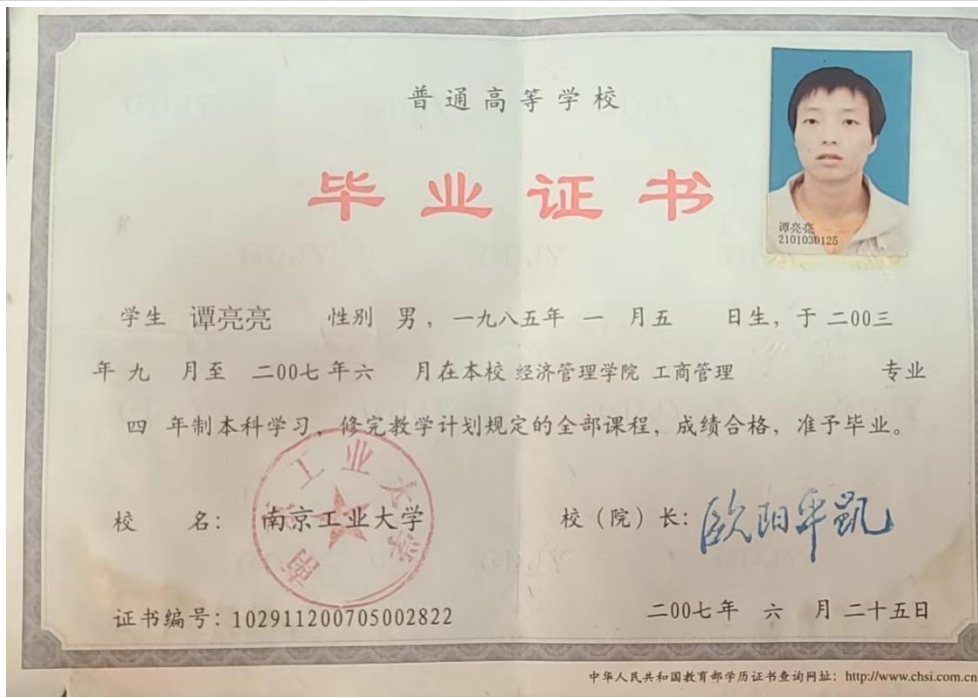 普通高等学校
毕业证书
谭亮亮
2101030125
学生 谭亮亮 性别 男，一九八五年 一 月五 日生，于 二00三
年 九 月至 二00七 年六 月在本校 经济管理学院 工商管理 专业
四 年制本科学习，修完教学计划规定的全部课程，成绩合格，准予毕业。
南京工业大学
校 名：南京工业大学 校（院）长：欧阳平凯
证书编号：102911200705002822 二00七年 六 月 二十五日
中华人民共和国教育部学历证书查询网址：http://www.chsi.com.cn